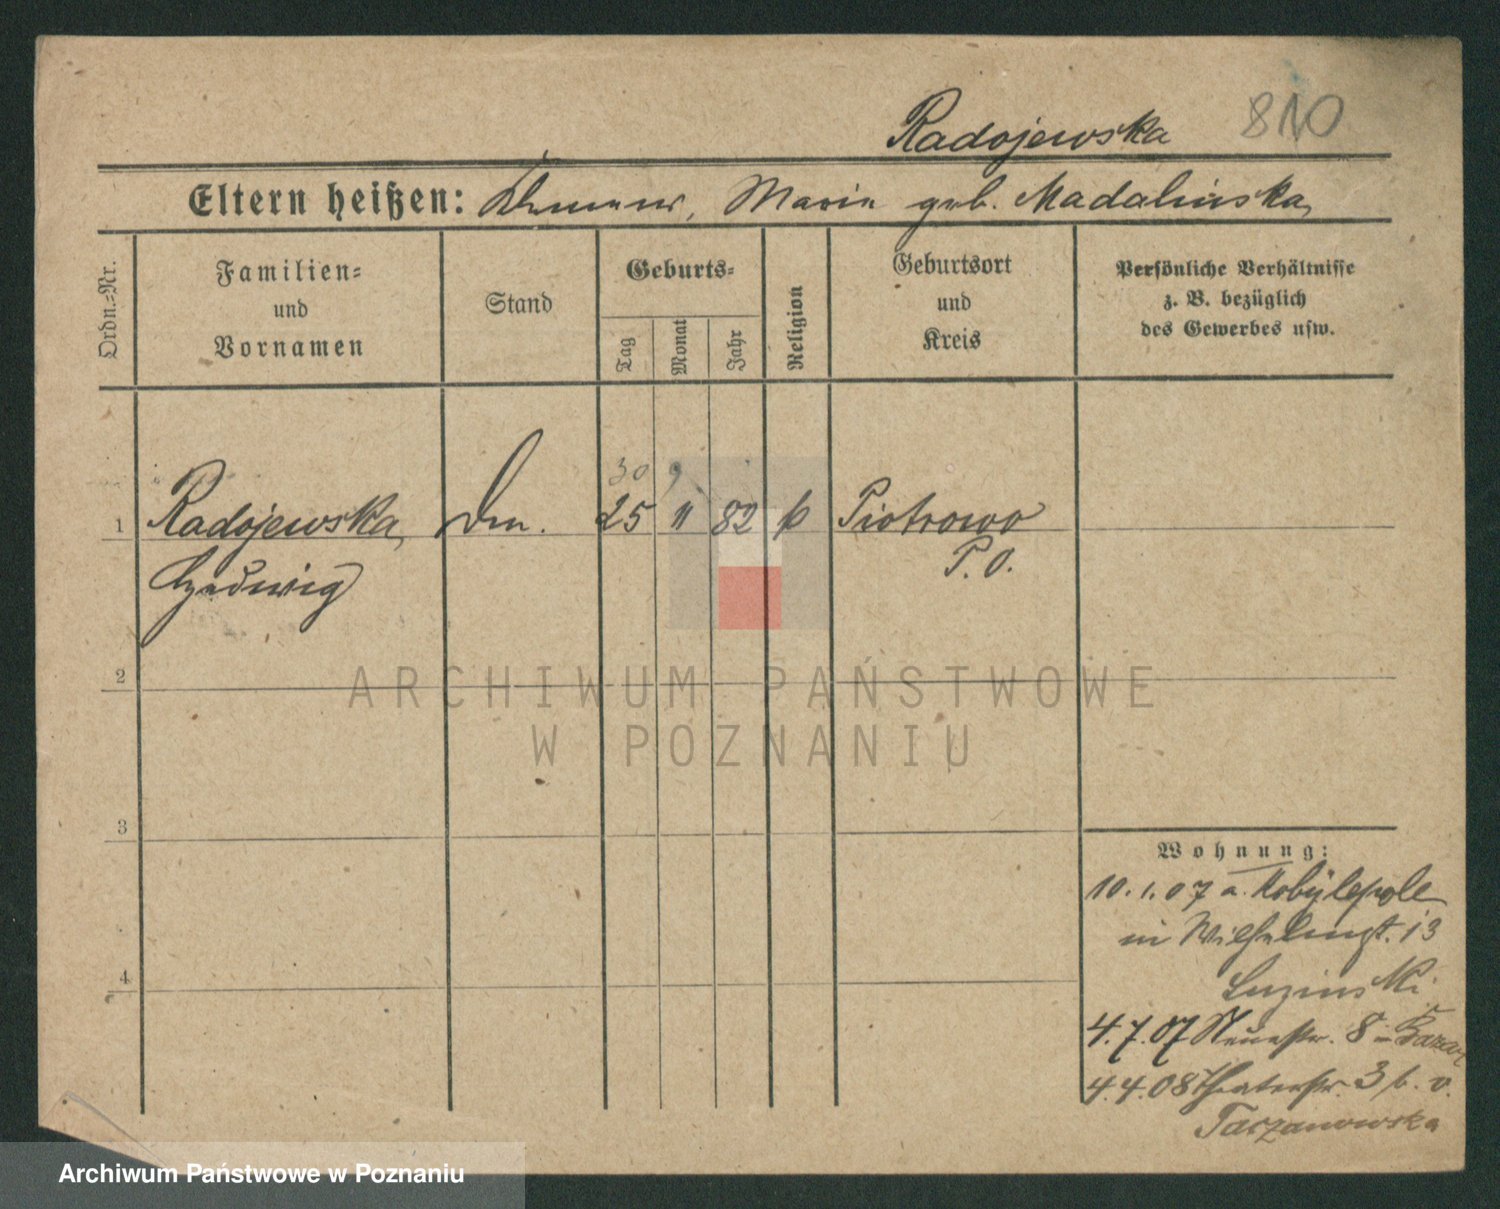 Radojewska 810
Eltern heißen: Clemens, Maria geb. Madalinska
Ordn.=Nr.
Familien=
und
Vornamen
Stand
Geburts=
Tag
Monat
Jahr
Religion
Geburtsort
und
Kreis
Persönliche Verhältnisse
z. B. bezüglich
des Gewerbes usw.
30 9
1 Radojewska, 25 11 82 k Piotrowo
Hedwig P. O.
2
ARCHIWUM PAŃSTWOWE
W POZNANIU
3
Wohnung:
10.1.07 a. Kobylepole
in Wilhelmst. 13
4
4.7.07 Neuestr. 8 Bazar
4.4.08 Theaterstr. 3 b. v.
Taczanowska
Archiwum Państwowe w Poznaniu